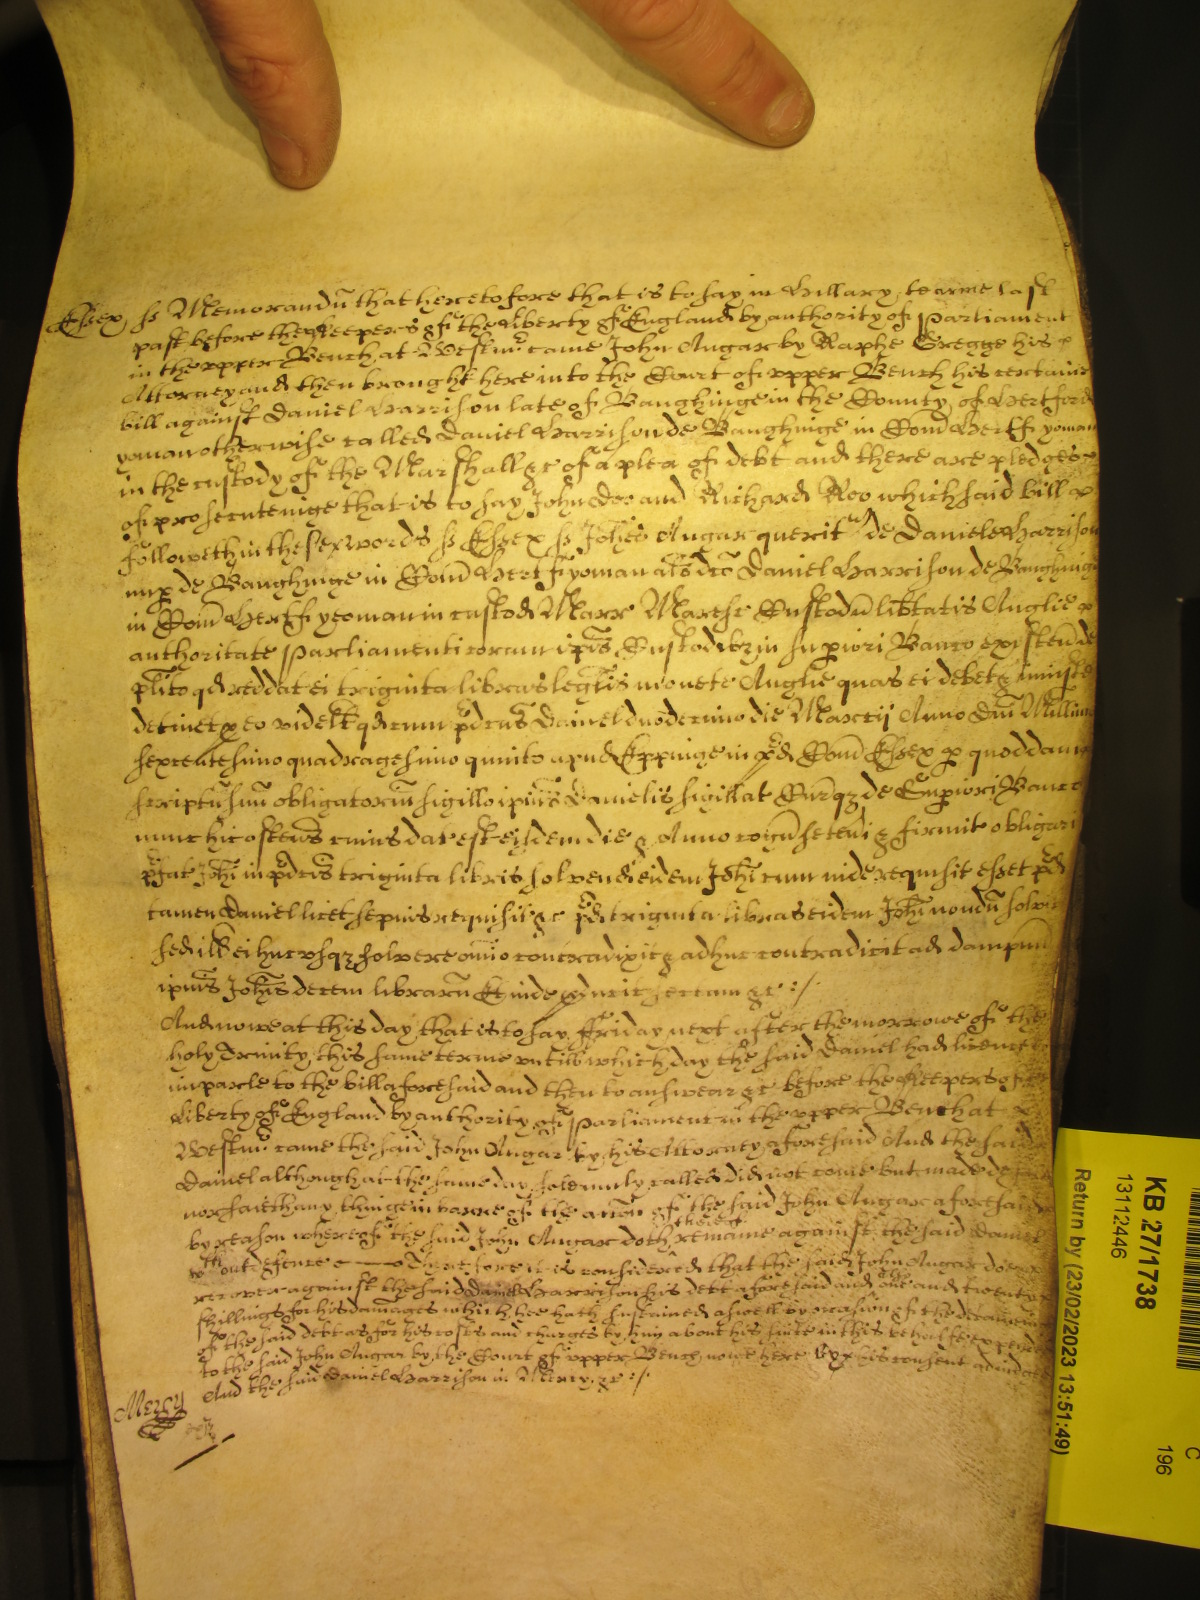 Essex ss Memorandū that heretofore that is to say in Hillary tearme last
past before the Keepers of the Liberty of England by authority of Parliament
in the vpper Bench at Westmr came John Aungar by Raphe Gregge his
Attorney and then brought here into the Court of vpper Bench his certaine
bill against Daniel Harrison late of Baughinge in the County of Hertford
yoman otherwise called Daniel Harrison de Baughinge in Com̄ Hertf yoman
in the custody of the Marshall &c of a plea of debt and there are pledges
of prosecuteinge that is to say John Doo and Richard Roo which said bill
followeth in these words ss Essex ss Johēs Aungar queritr de Daniele Harrison
nup de Baughinge in Com̄ Hertf yoman als dcō Daniel Harrison de Baughinge
in Com̄ Hertf yeoman in custod Marr Maresc Custodū lib̄tatis Anglie p
authoritate Parliamenti coram ip̄is Custodibz in supiori Banco existen̄ de
plīto qd reddat ei triginta libras legalis monete Anglie quas ei debet & iniuste
detinet p eo videlt qd cum p̄dcūs Daniel duodecimo die Marcij Anno Dnī Millimo
sexcentesimo quadragesimo quinto apud Eppinge in p̄d Com̄ Essex p quoddam
scriptū suū obligatoriū sigillo ip̄ius Danielis sigillat Curq̄z de Supiori Banco
nunc hic ostens̄ cuius dat est eisdem die & Anno cogn̄ se teneri & firmit obligari
p̄fat Johī in p̄dcīs triginta libris solvend eidem Johī cum inde requisit esset p̄d
tamen Daniel licet sepius requisit &c p̄d triginta libras eidem Johī nondū solvit
sed ill ei huc vsqz solvere om̄io contradixit & adhuc contradicit ad dampnū
ip̄ius Johīs decem librarū Et inde p̄ducit sectam &c :/
And nowe at this day that is to say Friday next after the morrowe of the
holy Trinity this same terme vntill which day the said Daniel had licence
imparle to the bill aforesaid and then to answear &c before the Keepers of the
Liberty of England by authority of Parliament in the vpper Bench at
Westmr came the said John Aungar by his Attorney aforesaid And the said
Daniel although at the same day solemnly called did not come but made
nor saieth any thinge in barre of the accōn of the said John Aungar aforesaid
by reason whereof the said John Aungar doth remaine thereof against the said Daniel
wthout defence Therefore it is considered that the said John Aungar doe
recover against the said Daniel Harrison his debt aforesaid and one and twenty
shillings for his damages which hee hath sustained aswell by occasion of the deteininge
of the said debt as for his costs and charges by him about his suite in this behalfe expended
to the said John Aungar by the Court of vpper Bench nowe here by his consent adiudged
And the said Daniel Harrison in Mercy &c :/
Mercy
KB 27/1738
13112446
Return by (23/02/2023 13:51:49)
C
196